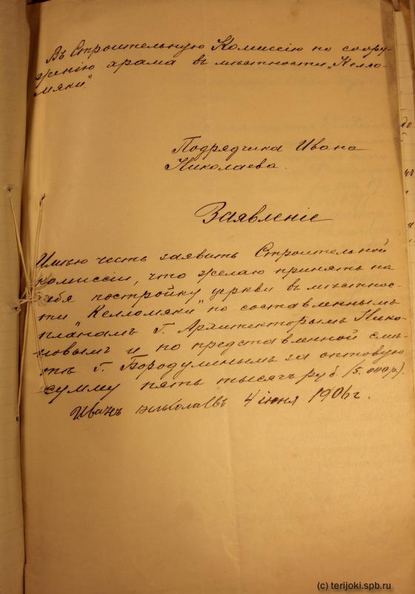 Въ Строительную Комиссію по соору-
женію храма въ мѣстности „Келло-
мяки"
Подрядчика Ивана
Николаева.
Заявленіе
Имѣю честь заявить Строительной
комиссіи, что желаю принять на
себя постройку церкви въ мѣстнос-
ти „Келломяки" по составленнымъ
планамъ Г. Архитекторомъ Нико-
новымъ и по представленной смѣ-
тѣ Г. Бородулинымъ за оптовую
сумму пять тысячъ руб (5.000 р).
Иванъ Николаевъ 4 іюня 1906 г.
(c) terijoki.spb.ru